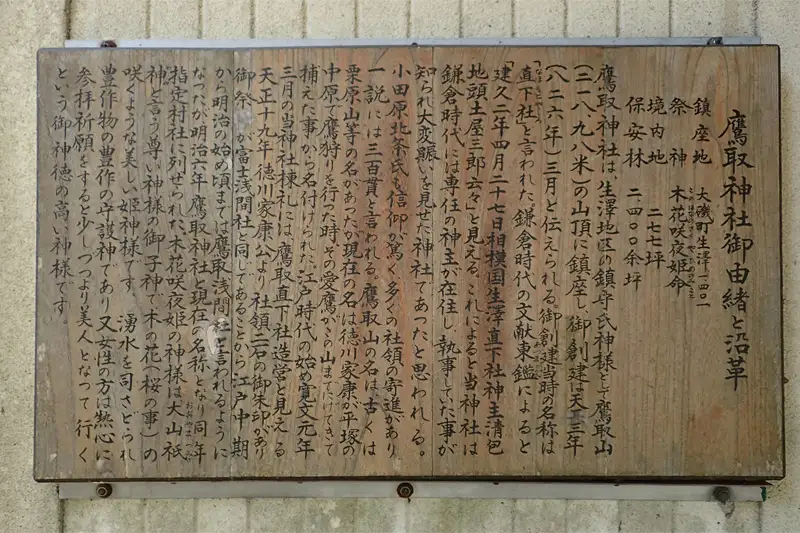 鷹取神社御由緒と沿革
鎮座地　大磯町生澤一四〇一
祭神　木花咲夜姫命
境内地　二七七坪
保安林　二四〇〇余坪
鷹取神社は、生澤地区の鎮守氏神様として鷹取山
(二一八、九八米)の山頂に鎮座し、御創建は天長三年
(八二六年)三月と伝えられる。御創建当時の名称は
直下社と言われた。鎌倉時代の文献東鑑によると
「建久二年四月二十七日相模国生澤直下社神主清包
地頭土屋三郎云々」と見える。これによると当神社は
鎌倉時代には専任の神主が在住し、執事していた事が
知られ大変賑いを見せた神社であったと思われる。
小田原北条氏も信仰が篤く多くの社領の寄進があり
一説には三百貫と言われる。鷹取山の名は古くは
栗原山等の名があったが現在の名は徳川家康が平塚の
中原で鷹狩りを行った時、その愛鷹がこの山までにげてきて
捕えた事から名付けられた。江戸時代の始め寛文元年
三月の当神社棟札には、鷹取直下社造営と見える
天正十九年徳川家康公より社領二石の御朱印があり
御祭神が富士浅間社と同してあることから江戸中期
から明治の始め頃までは鷹取浅間社と言われるように
なったが明治六年鷹取神社と現在の名称となり同年
指定村社に列せられた。木花咲夜姫の神様は大山祇
神と言う尊い神様の御子神で木の花(桜の事)の
咲くような美しい姫神様です 湧水を司さどられ
豊作物の豊作の守護神であり又女性の方は熱心に
参拝祈願をすると少しつつより美人となって行く
という御神徳の高い神様です。